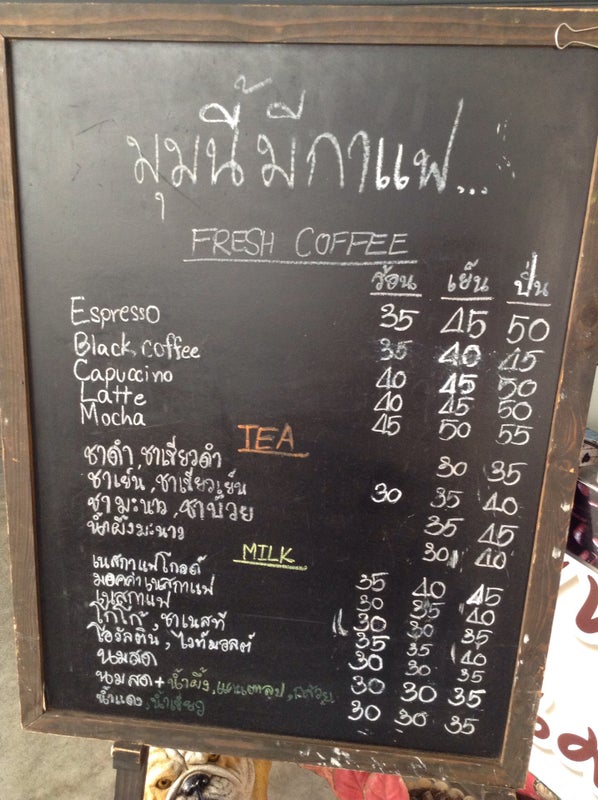 มุมนี้มีกาแฟ...
FRESH COFFEE
ร้อน เย็น ปั่น
Espresso 35 45 50
Black coffee 35 40 45
Capuccino 40 45 50
Latte 40 45 50
Mocha 45 50 55
TEA
ชาดำ, ชาเขียวดำ 30 35
ชาเย็น, ชาเขียวเย็น 30 35 40
ชามะนาว, ชาบ๊วย 35 45
น้ำผึ้งมะนาว 30 40
MILK
เนสกาแฟโกลด์ 35 40 45
มอคค่าเนสกาแฟ 30 35 40
เนสกาแฟ 30 30 35
โกโก้, ชาเนสที 35 35 40
โอวัลติน, ไวท์มอลต์ 30 30 35
นมสด
นมสด + น้ำผึ้ง, 30 30 35
น้ำแดง, น้ำเขียว 30 30 35